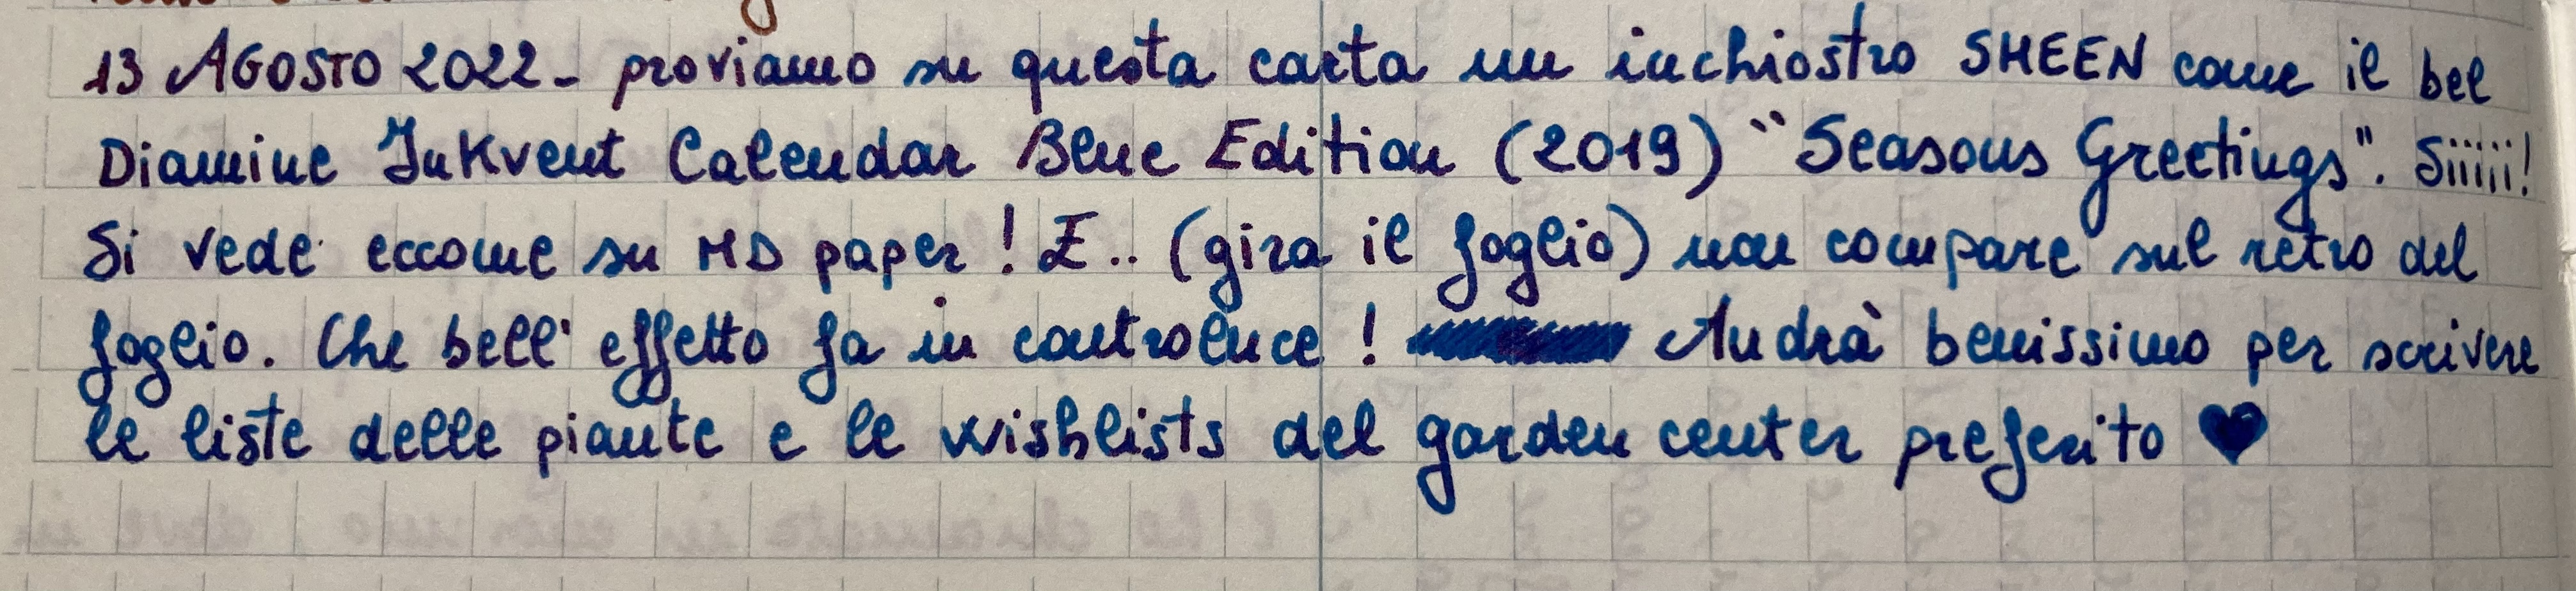 13 AGOSTO 2022 - proviamo su questa carta un inchiostro SHEEN come il bel
Diamine InKvent Calendar Blue Edition (2019) "Seasons Greetings". Siiiii!
Si vede eccome su MD paper! E.. (gira il foglio) non compare sul retro del
foglio. Che bell'effetto fa in controluce! Andrà benissimo per scrivere
le liste delle piante e le wishlists del garden center preferito ♥